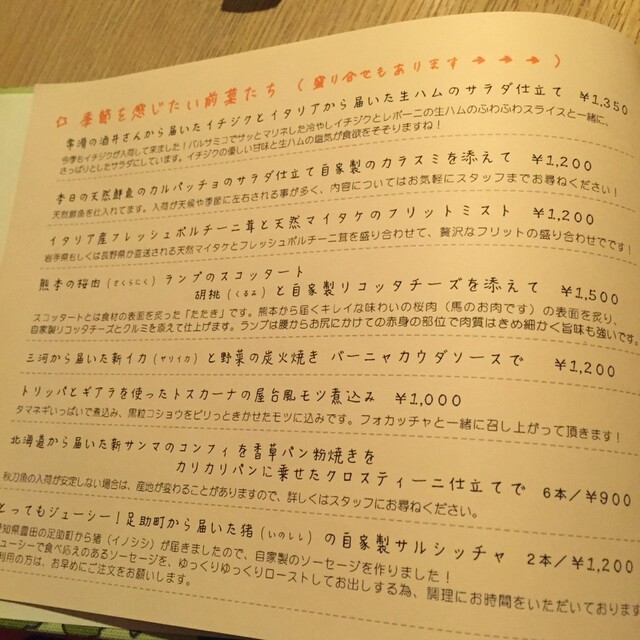 ☆ 季節を感じたい前菜たち ( 盛り合せもあります → → → )
常滑の酒井さんから届いたイチジクとイタリアから届いた生ハムのサラダ仕立て ¥1,350
今季もイチジクが入荷して来ました！バルサミコでサッとマリネした冷やしイチジクとレボーニの生ハムのふわふわスライスと一緒に、
さっぱりとしたサラダにしています。イチジクの優しい甘味と生ハムの塩気が食欲をそそりますね！
本日の天然鮮魚のカルパッチョのサラダ仕立て自家製のカラスミを添えて ¥1,200
天然鮮魚を仕入れてます。入荷が天候や季節に左右される事が多く、内容についてはお気軽にスタッフまでお尋ねください！
イタリア産フレッシュポルチーニ茸と天然マイタケのフリットミスト ¥1,200
岩手県もしくは長野県か直送される天然マイタケとフレッシュポルチーニ茸を盛り合わせて、贅沢なフリットの盛り合わせでです！
熊本の桜肉 (さくらにく) ランプのスコッタート
胡桃 (くるみ) と自家製リコッタチーズを添えて ¥1,500
スコッタートとは食材の表面を炙った「たたき」です。熊本から届くキレイな味わいの桜肉（馬のお肉です）の表面を炙り、
自家製リコッタチーズとクルミを添えて仕上げます。ランプは腰からお尻にかけての赤身の部位で肉質はきめ細かく旨味も強いです。
三河から届いた新イカ (ヤリイカ) と野菜の炭火焼き バーニャカウダソースで ¥1,200
トリッパとギアラを使ったトスカーナの屋台風モツ煮込み ¥1,000
タマネギいっぱいで煮込み、黒粒コショウをピリっときかせたモツに込みです。フォカッチャと一緒に召し上がって頂きます！
北海道から届いた新サンマのコンフィを香草パン粉焼きを
カリカリパンに乗せたクロスティーニ仕立てで 6本/¥900
秋刀魚の入荷が安定しない場合は、産地が変わることがありますので、詳しくはスタッフにお尋ねください。
とってもジューシー！足助町から届いた猪 (いのしし) の自家製サルシッチャ 2本/¥1,200
知県豊田の足助町から猪（イノシシ）が届きましたので、自家製のソーセージを作りました！
ューシーで食べ応えのあるソーセージを、ゆっくりゆっくりローストしてお出しする為、調理にお時間をいただいております
利用の方は、お早めにご注文をお願いします。